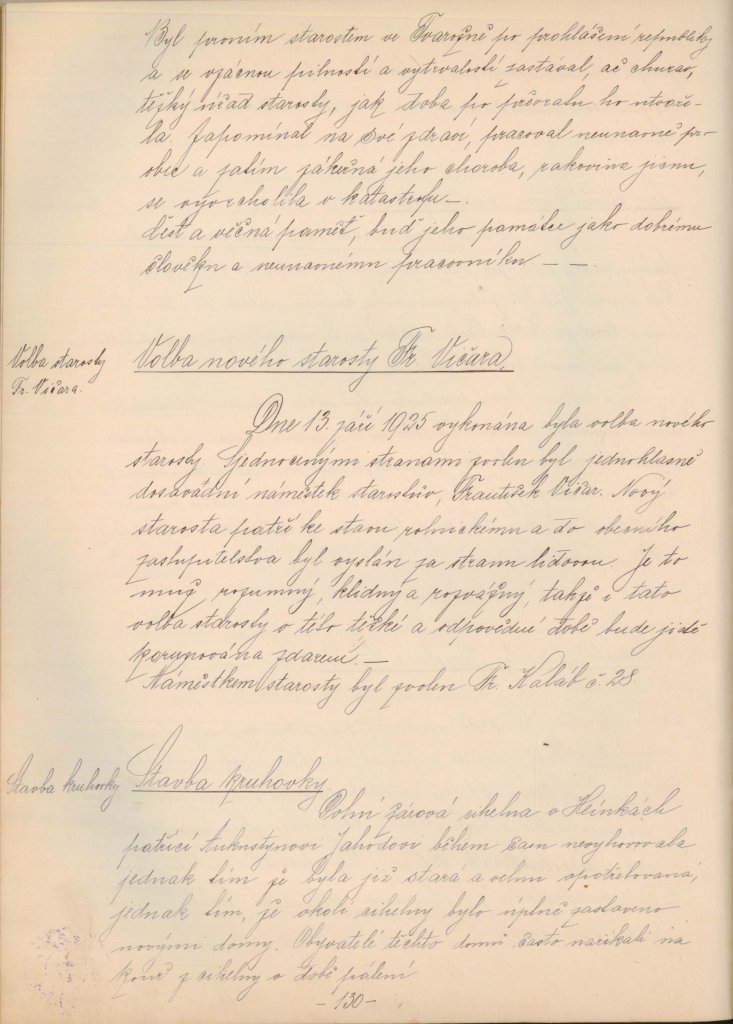 Byl prvním starostem ve Tvarožně po prohlášení republiky
a se vzácnou pilností a vytrvalostí zastával, ač churav,
těžký úřad starosty, jak doba po převratu ho utvoři-
la. Zapomínal na své zdraví, pracoval neunavně pro
obec a zatím zákeřná jeho choroba, rakovina jícnu,
se vyvrcholila v katastrofu. —
Čest a věčná paměť, buď jeho památce jako dobrému
člověku a neunavnému pracovníku. — —.
Volba starosty
Fr. Vičara.
Volba nového starosty Fr. Vičara.
Dne 13. září 1925 vykonána byla volba nového
starosty. Sjednocenými stranami zvolen byl jednohlasně
dosavádní náměstek starostův, František Vičar. Nový
starosta patří ke stavu rolnickému a do obecního
zastupitelstva byl vyslán za stranu lidovou. Je to
muž rozumný, klidný a rozvážný, takže i tato
volba starosty v této těžké a odpovědné době bude jistě
korunována zdarem. —
Náměstkem starosty byl zvolen Fr. Kaláb č. 28.
Stavba kruhovky
Stavba kruhovky.
Polní žárová cihelna v Heinkách
patřící Aukustynovi Jahodovi během času nevyhovovala
jednak tím že byla již stará a velmi opotřebovaná,
jednak tím, že okolí cihelny bylo úplně zastaveno
novými domy. Obyvatelé těchto domů často naříkali na
kouř z cihelny v době pálení
- 130 -